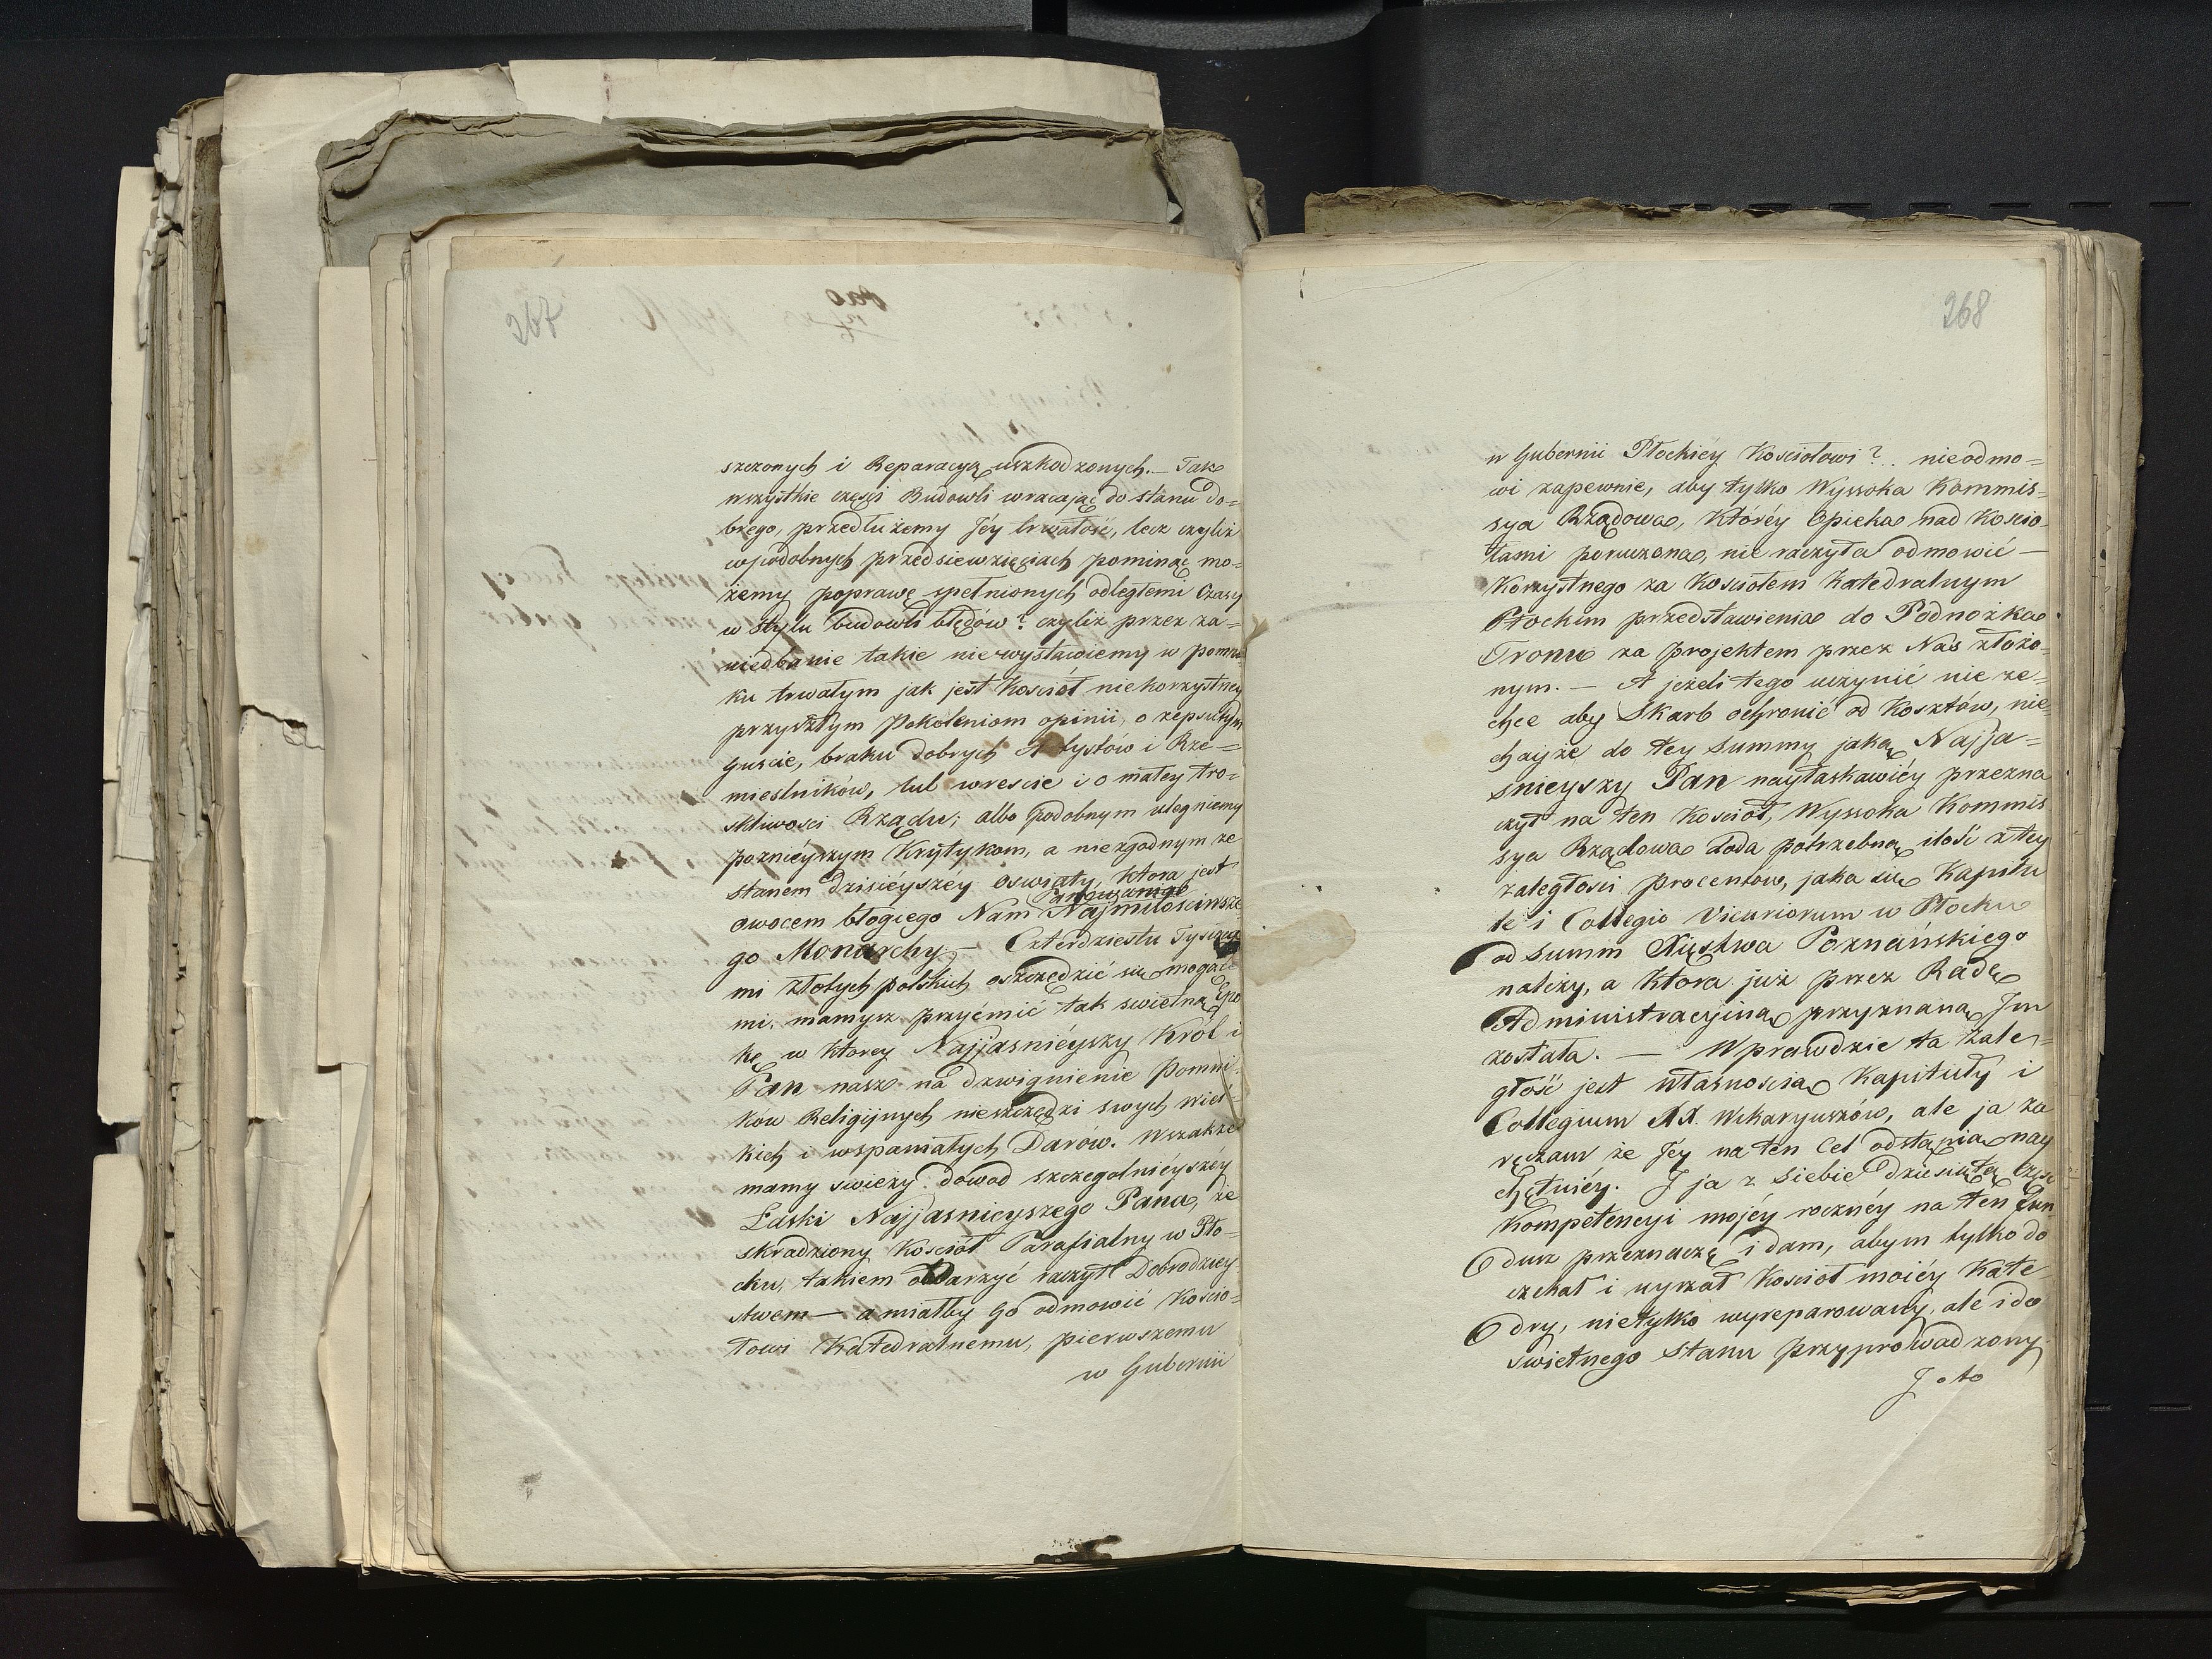 267
szczonych i Reparacyą uszkodzonych. – Tak
wszystkie części Budowli wracając do stanu do=
brego, przedłużemy Jéy trwałość, lecz czyliż
w podobnych przedsiewzięciach pominąć mo=
żemy poprawę spełnionych odległemi Czasy
w stylu budowli błędów? czyliż przez za=
niedbanie takie niewystawiemy w pomni
ku trwałym jak jest Kościoł niekorzystney
przyszłym Pokoleniom opinii, o zepsutym
guscie, braku dobrych Artystów i Rze=
mieslników, lub wrescie i o małey tro=
skliwosci Rządu; albo podobnym ulegniemy
poznieyszym Krytykom, a niezgodnym ze
stanem dzisiéyszéy oswiaty, ktora jest
Panowania
owocem błogiego Nam Najmiłosciwsze
go Monarchy. – Czterdziestu Tysiącа
mi złotych polskich oszczędzić się mogące
mi, mamysz przyémić tak swietną Epo
kę w ktorey Najjasniéyszy Król i
Pan nasz na dzwignienie Pomni=
ków Religijnych nieszczędzi swych wiel=
kich i wspaniałych Darów. Wszakże
mamy swieży dowod szczegolniéyszéy
Łaski Najjasnieyszego Pana, że
skradziony Kościoł Parafialny w Pło=
cku, takiem obdarzyć raczył Dobrodziey
stwem – a miałby go odmowić Kościo=
łowi Katedralnemu, pierwszemu
w Gubernii
268
w Gubernii Płockiéy Kościołowi? .. nieodmo=
wi zapewnie, aby tylko Wyssoka Kommis=
sya Rządowa, któréy Opieka nad Kościo=
łami poruczona, nie raczyła odmowić –
Korzystnego za Kościołem Katedralnym
Płockim przedstawienia do Podnożka
Tronu za projektem przez Nas złożo=
nym. – A jeżeli tego uczynić nie ze=
chce aby Skarb ochronić od Kosztów, nie=
chayże do tey Summy jaką Najja=
snieyszy Pan nayłaskawiéy przezna
czył na ten Kościoł, Wyssoka Kommis
sya Rządowa doda potrzebną ilość z tey
zaległosci procentow, jaka się Kapitu
le i Collegio Vicariorum w Płocku
od Summ Xięstwa Poznańskiego
należy, a ktora już przez Radę
Administracyjną przyznana Im
została. – Wprawdzie ta zale=
głość jest własnoscią Kapituły i
Collegium XX. Wikaryuszów, ale ja za
ręczam że Jéy na ten Cel odstąpią nay
chętniéy. I ja z siebie dziesiątą Część
Kompetencyi mojéy roczney na ten Fun
dusz przeznaczę i dam, abym tylko do
czekał i uyrzał Kościoł moiéy Kate
dry, nietylko wyreparowany, ale i do
swietnego Stanu przyprowadzony.
I oto